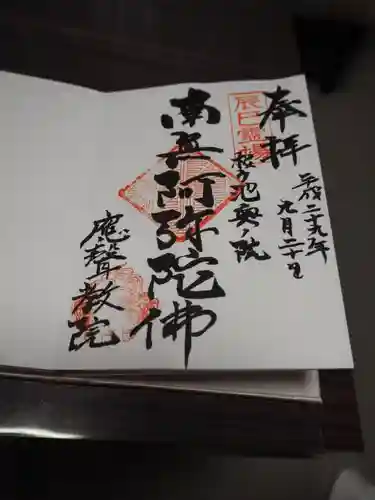 奉拝
平成二十九年
九月二十日
辰巳霊場
松ヶ池奥ノ院
南無阿弥陀佛
應聲教院